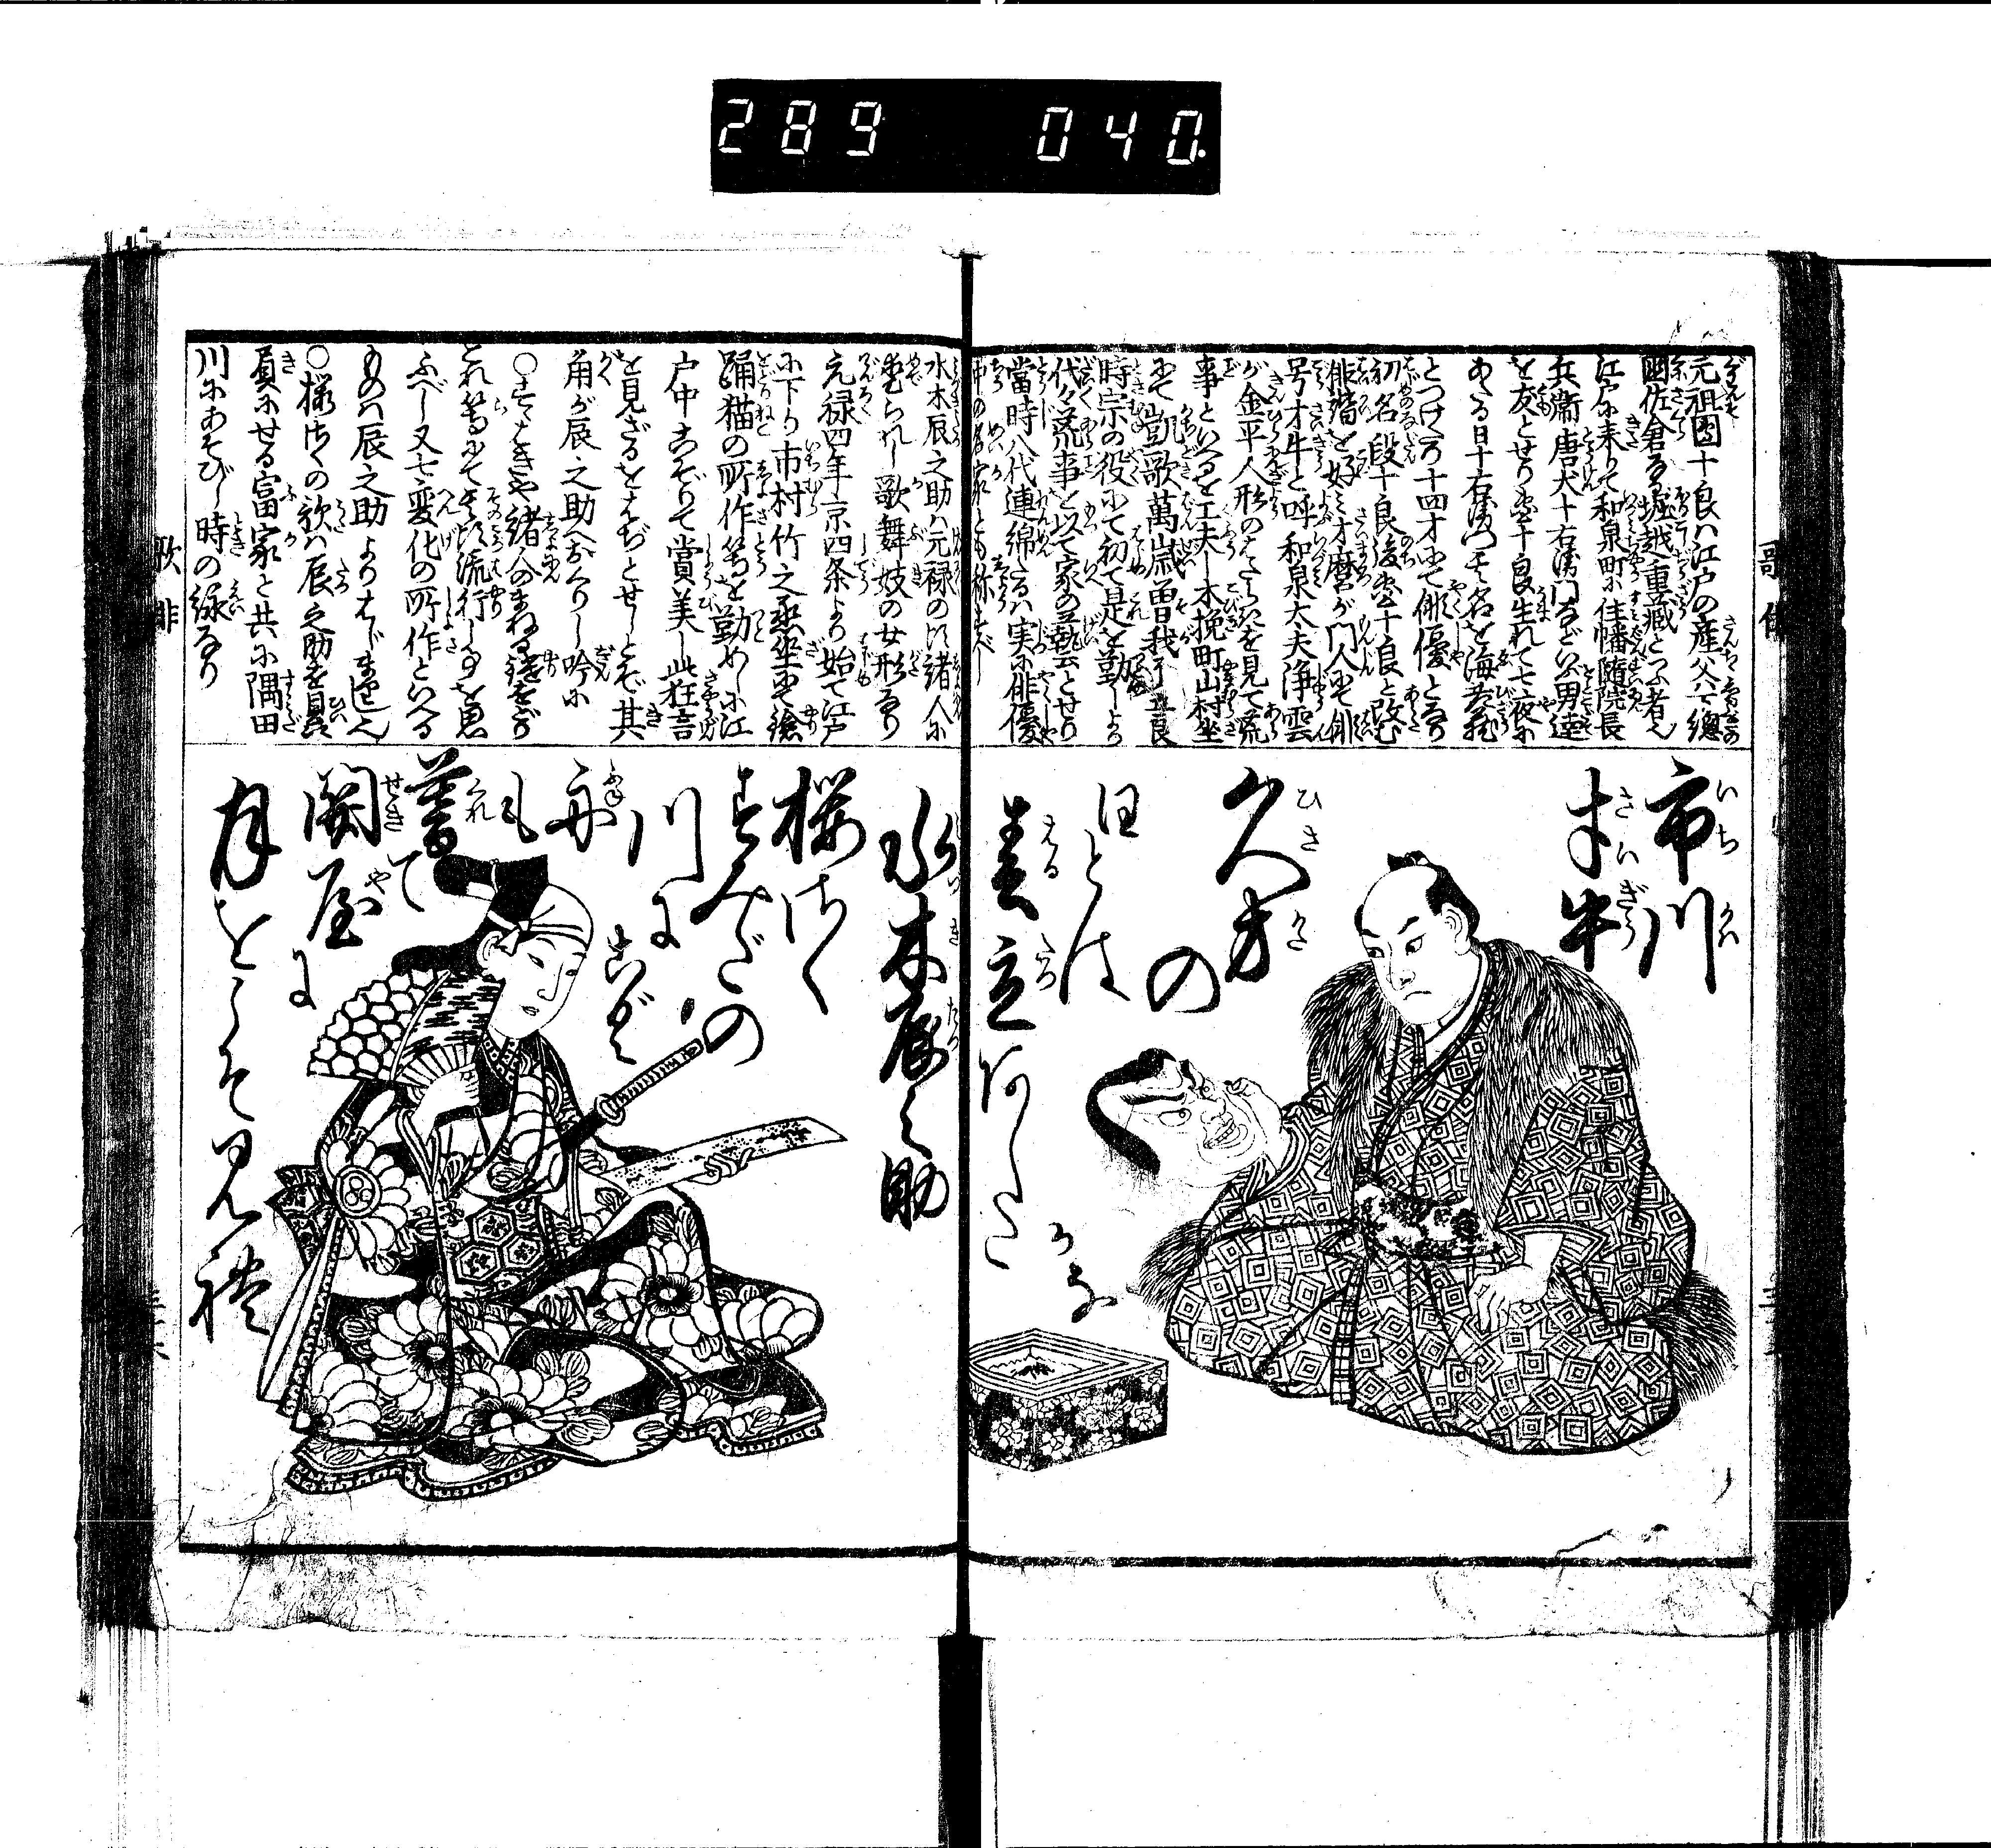 289 040
元祖團十良ハ江戸の産父ハ下總
國佐倉なる堀越重蔵といふ者にて
江戸に来りて和泉町に住幡随院長
兵衛唐犬十右衛門などいふ男達
を友とせり団十良生れて七夜に
あたる日十右衛門其名を海老蔵
とつけたり十四才にて俳優となり
初名段十良後団十良と改む
俳諧を好み才麿が門人にて俳
号才牛と呼和泉太夫浄雲
が金平人形のはたらきを見て荒
事といへるを工夫し木挽町山村坐
にて凱歌萬歳曽我に五良
時宗の役にて初て是を勤しより
代々荒事を以て家の芸とせり
當時八代連綿たるハ実に俳優
中の名家とも称すべし
市川
才牛
久方
の
春立
かな
水木辰之助ハ元禄の頃諸人に
愛られし歌舞妓の女形なり
元禄四年京四条より始て江戸
に下り市村竹之丞坐にて鎗
踊猫の所作等を勤めしに江
戸中こぞりて賞美し此狂言
を見ざるをはぢとせしとぞ其
角が辰之助へおくりし吟に
○煤はきや諸人のまねる鎗をどり
これ等にて其頃流行しゝを思
ふべし又七変化の所作といへる
ものハ辰之助よりはじまれり
○桜さくの歌ハ辰之助を贔
屓にせる富家と共に隅田
川にあそびし時の詠なり
水木辰之助
桜さく
すみだの
川に
こぐ
舟
も
暮て
関屋に
月をこそ見礼